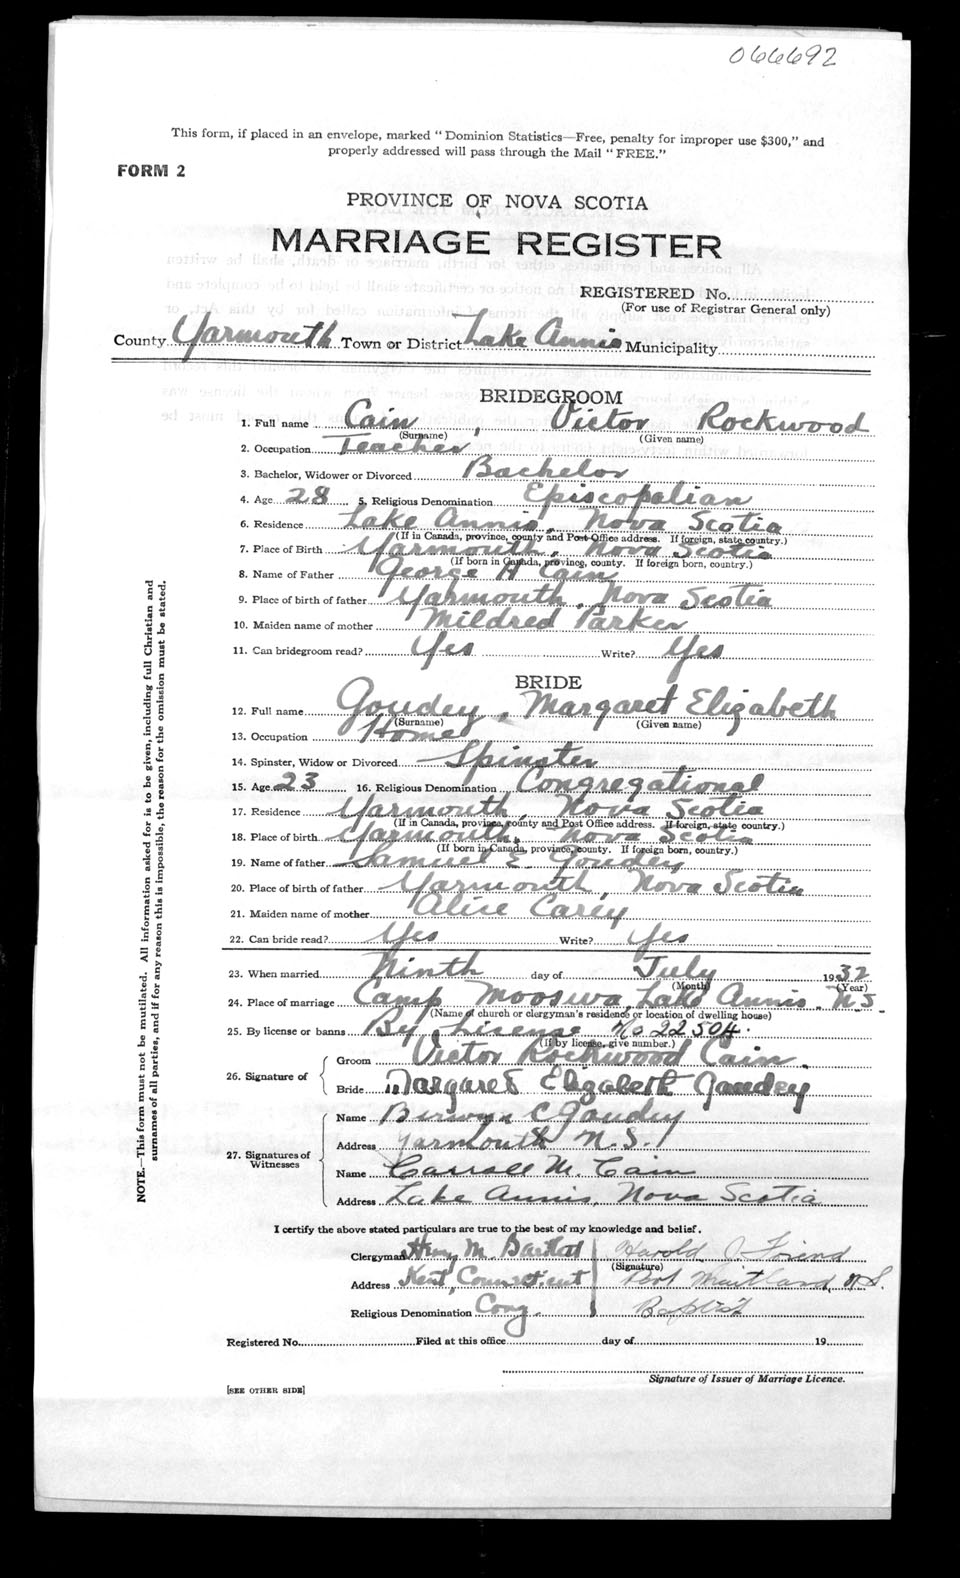 066692
This form, if placed in an envelope, marked "Dominion Statistics—Free, penalty for improper use $300," and
properly addressed will pass through the Mail "FREE."
FORM 2
PROVINCE OF NOVA SCOTIA
MARRIAGE REGISTER
REGISTERED No.
(For use of Registrar General only)
County Yarmouth Town or District Lake Annis Municipality
BRIDEGROOM
1. Full name Cain, Victor Rockwood
(Surname) (Given name)
2. Occupation Teacher
3. Bachelor, Widower or Divorced Bachelor
4. Age 28 5. Religious Denomination Episcopalian
6. Residence Lake Annis, Nova Scotia
(If in Canada, province, county and Post Office address. If foreign, state country.)
7. Place of Birth Yarmouth, Nova Scotia
(If born in Canada, province, county. If foreign born, country.)
8. Name of Father George H Cain
9. Place of birth of father Yarmouth, Nova Scotia
10. Maiden name of mother Mildred Parker
11. Can bridegroom read? Yes Write? Yes
BRIDE
12. Full name Goudey, Margaret Elizabeth
(Surname) (Given name)
13. Occupation Home
14. Spinster, Widow or Divorced Spinster
15. Age 23 16. Religious Denomination Congregational
17. Residence Yarmouth, Nova Scotia
(If in Canada, province, county and Post Office address. If foreign, state country.)
18. Place of birth Yarmouth, Nova Scotia
(If born in Canada, province, county. If foreign born, country.)
19. Name of father Samuel E. Goudey
20. Place of birth of father Yarmouth, Nova Scotia
21. Maiden name of mother Alice Carey
22. Can bride read? Yes Write? Yes
23. When married Ninth day of July 1932
(Month) (Year)
24. Place of marriage Camp Mooswa, Lake Annis, N.S.
(Name of church or clergyman's residence or location of dwelling house)
25. By license or banns By License No 22504.
(If by license, give number.)
26. Signature of
Groom Victor Rockwood Cain.
Bride Margaret Elizabeth Goudey
27. Signatures of Witnesses
Name Berwyn C Goudey
Address Yarmouth N.S.
Name Carroll M. Cain
Address Lake Annis, Nova Scotia
I certify the above stated particulars are true to the best of my knowledge and belief.
Clergyman Henry M. Bartlett Harold J. Friend
(Signature)
Address Kent, Connecticut Port Maitland, N.S.
Religious Denomination Cong. Baptist
Registered No. Filed at this office day of 19
Signature of Issuer of Marriage Licence.
[SEE OTHER SIDE]
NOTE.—This form must not be mutilated. All information asked for is to be given, including full Christian and
surnames of all parties, and if for any reason this is impossible, the reason for the omission must be stated.